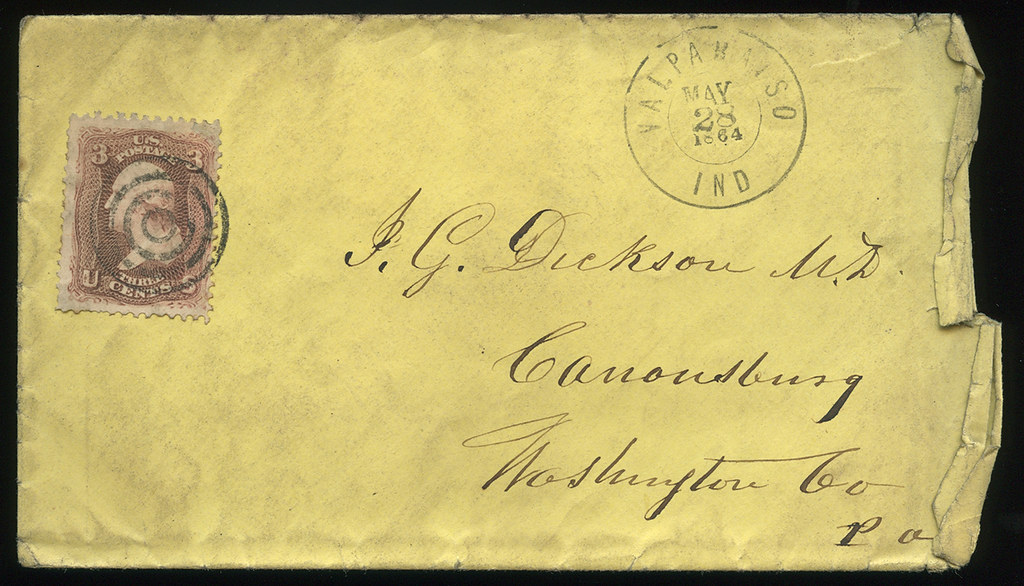 3 U.S. 3
POSTAGE
U
THREE
CENTS
VALPARAISO
MAY
28
1864
IND
J. G. Dickson M.D.
Canonsburg
Washington Co
Pa